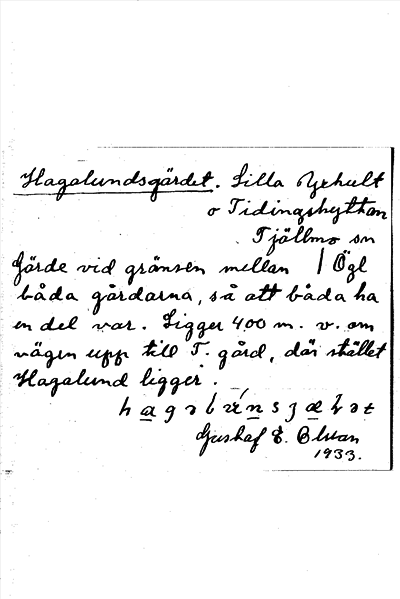 Hagalundsgärdet. Lilla Yxhult
o Tidingshyttan
Tjällmo sn
Gärde vid gränsen mellan / Ögl
båda gårdarna, så att båda ha
en del var. Ligger 400 m. v. om
vägen upp till T. gård, där stället
Hagalund ligger.
Gushaf E. Olsson
1933.